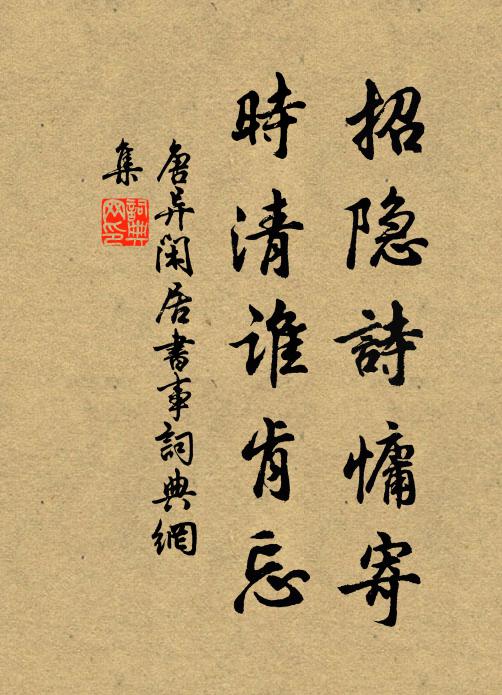 招隐詩慵寄
時清誰肯忘
唐异閑居書事詞典網
集
詞典
网印